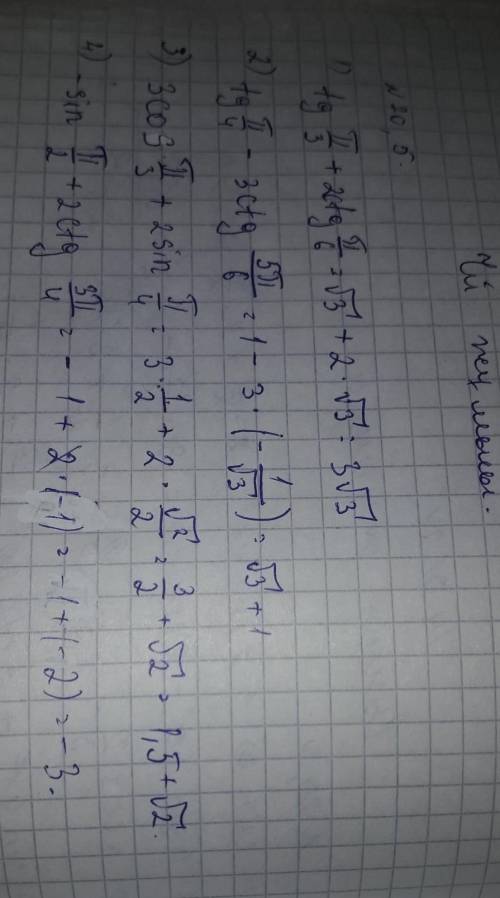 Үй жұмысы.
№20,5.
1) tg π/3 + 2ctg π/6 = √3 + 2·√3 = 3√3
2) tg π/4 - 3ctg 5π/6 = 1 - 3·(-1/√3) = √3 + 1
3) 3cos π/3 + 2sin π/4 = 3·1/2 + 2·√2/2 = 3/2 + √2 = 1,5 + √2.
4) -sin π/2 + 2ctg 3π/4 = -1 + 2·(-1) = -1 + (-2) = -3.